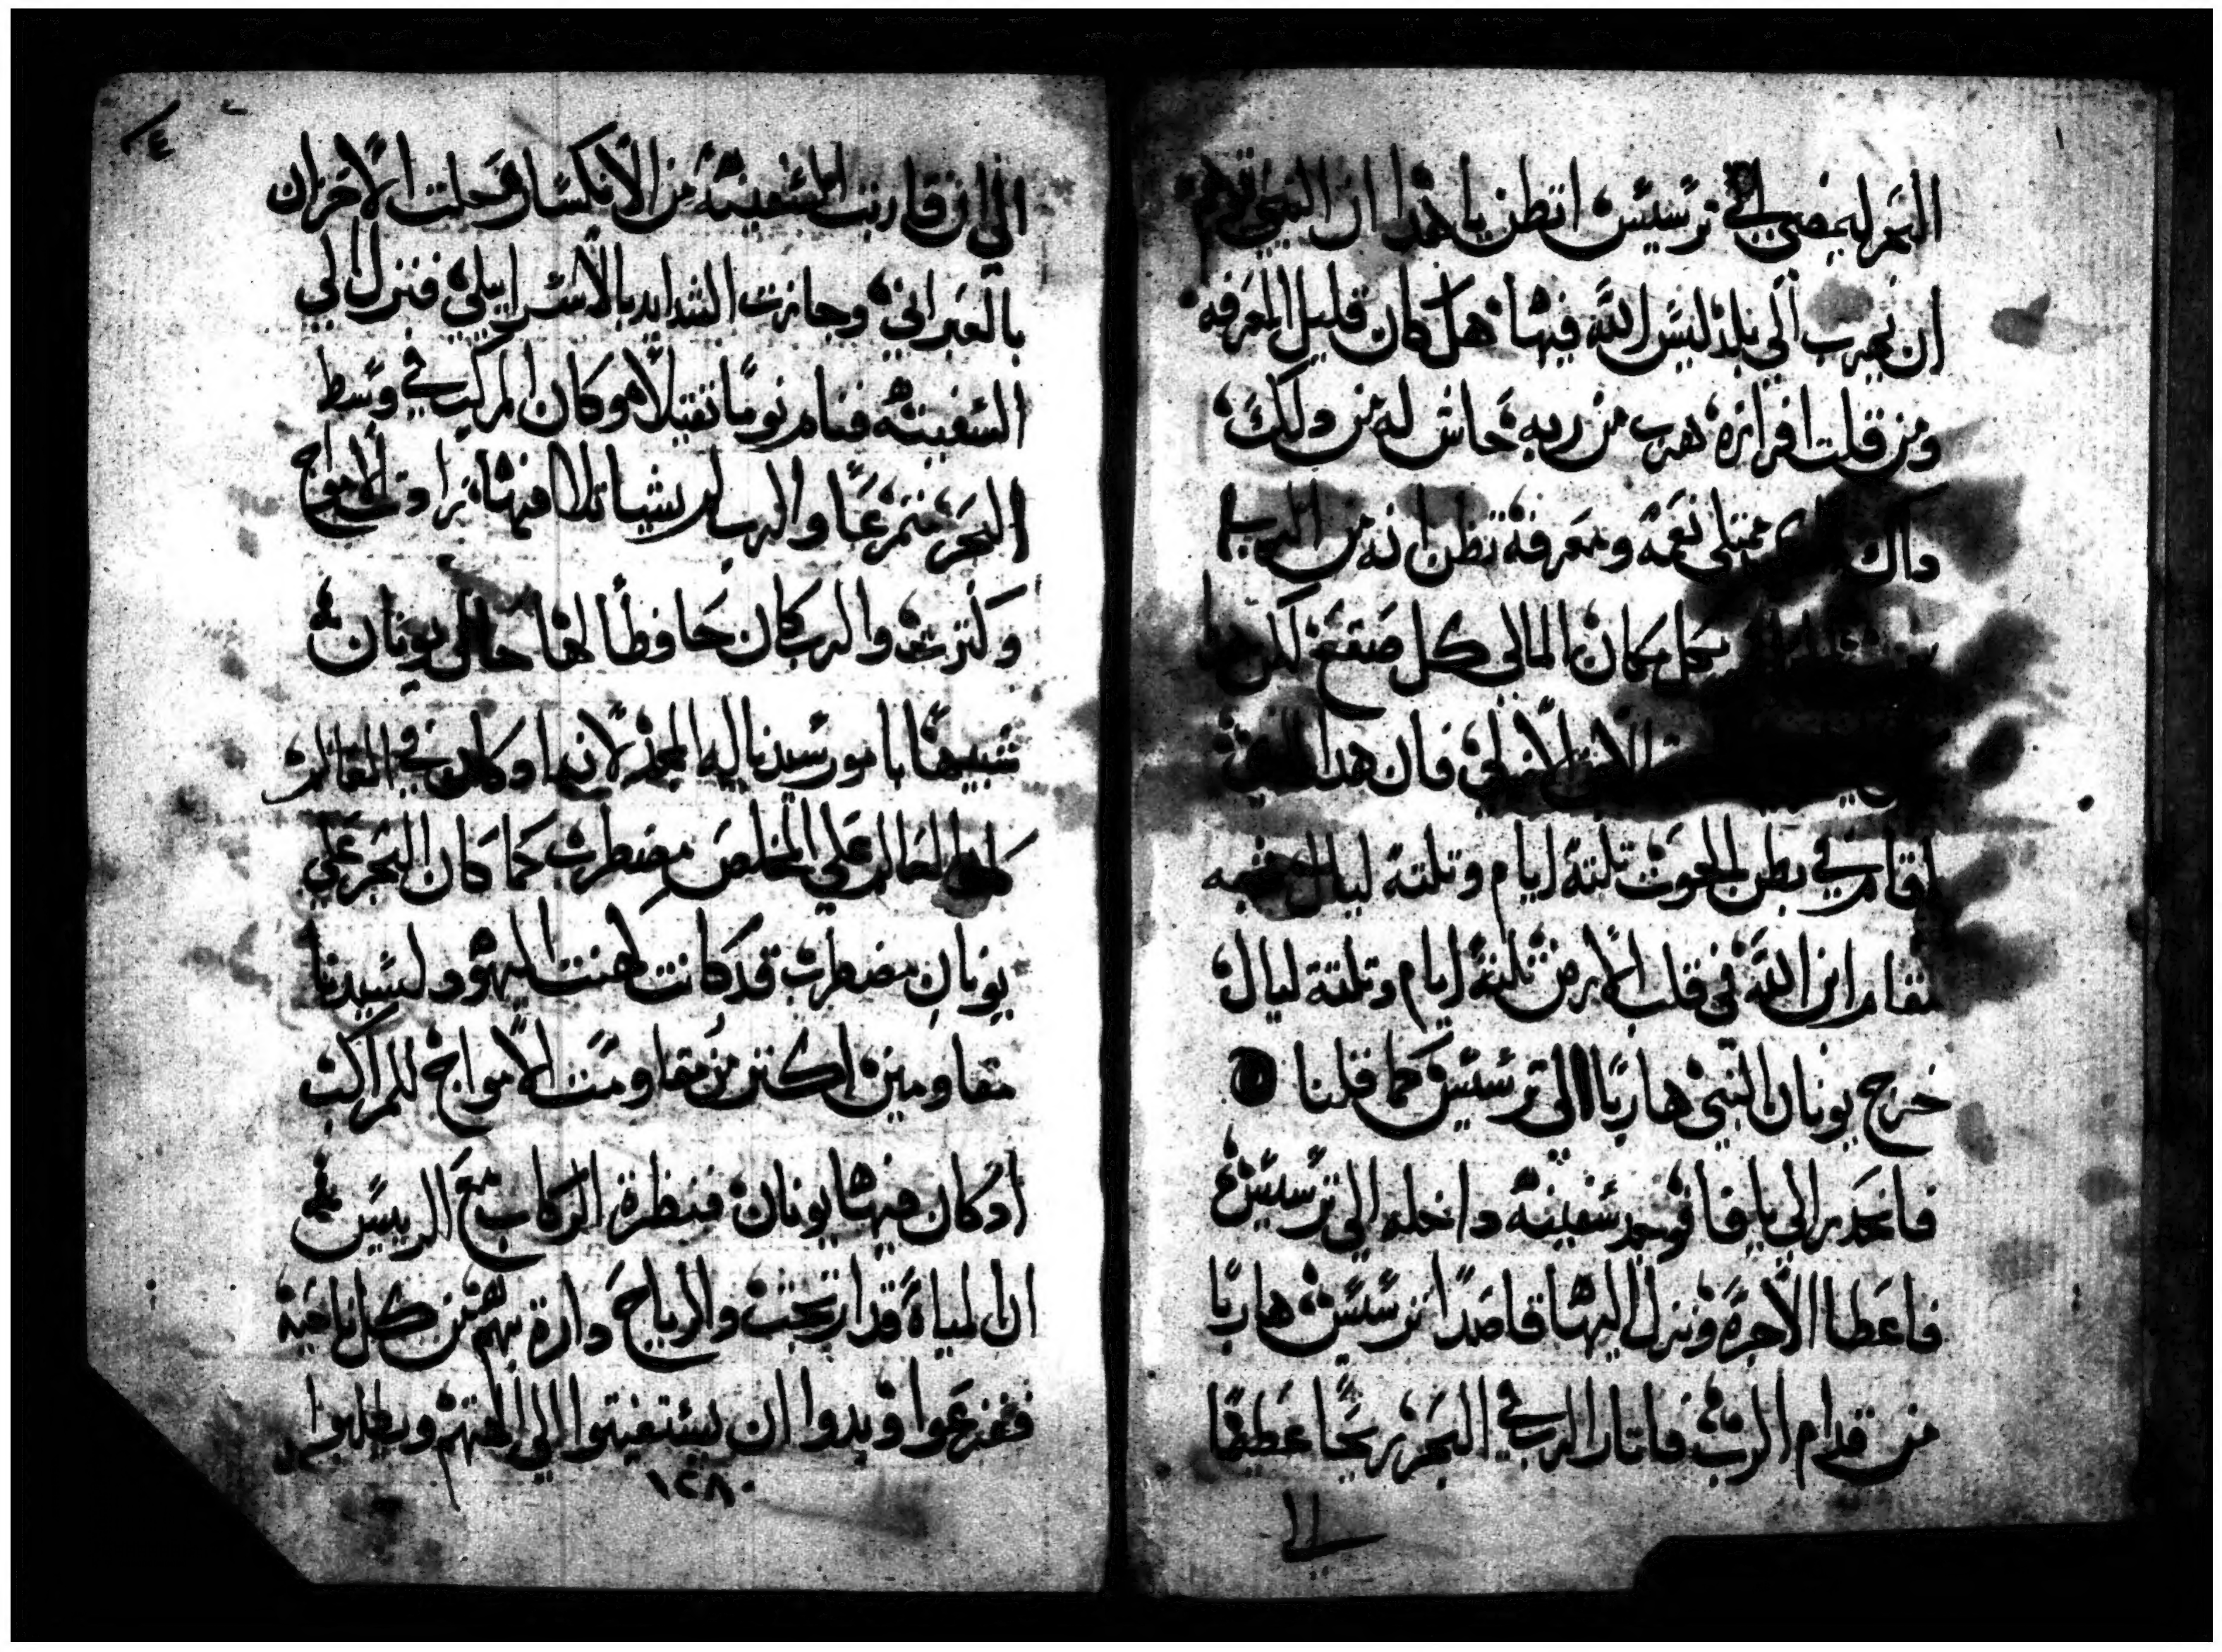 البحر ليمضي الي ترسيس اتظن يا هدا ان النبي توهم
ان يهرب الي بلد ليس الله فيها هل كان قليل المعرفه
ومن قلت افرازه هرب من ربه حاش له من دلك
ممتلي نعمه ومعرفة تظن انه من الرب
بكل مكان المالي كل صقع لكن
فان هدا
اقام في بطن الحوت تلتة ايام وتلتة ليال
مقام ابن الله في قلب الارض تلتة ايام وتلتة ليال
خرج يونان النبي هاربا الى ترسيس كما قلنا
فانحدر الي يافا فوجد سفينه داخله الي ترسيس
فاعطا الاجرة ونزل اليها قاصدا ترسيس هاربا
من قدام الرب فاتار الرب في البحر ريحا عظيما
١١
٤
الي ان قاربت السفينة من الانكسار فحلت الاحزان
بالعبراني وجازت الشدايد بالاسراييلي فنزل الي
السفينه فنام نوما تقيلا وكان المركب في وسط
البحر منمرعا والرب لم يشيا تلافها تراوت الامواج
وكترت والرب كان حافظا لها حال يونان
شبيها بامور سيدنا ليه المجد لانه اد كان في العالم
كان العالم علي المخلص مضطرب كما كان البحر علي
يونان مضطرب قد كانت كهنت اليهود لسيدنا
مقاومين اكتر من مقاومت الامواج للمراكب
اد كان فيها يونان فنظرة الركاب مع الرييس
ان المياة قد ارتجت والرياح دارة بهم من كل ناحية
ففزعوا وبدوا ان يستغيتوا الي الهتهم ويطلبوا
١٢٨٠